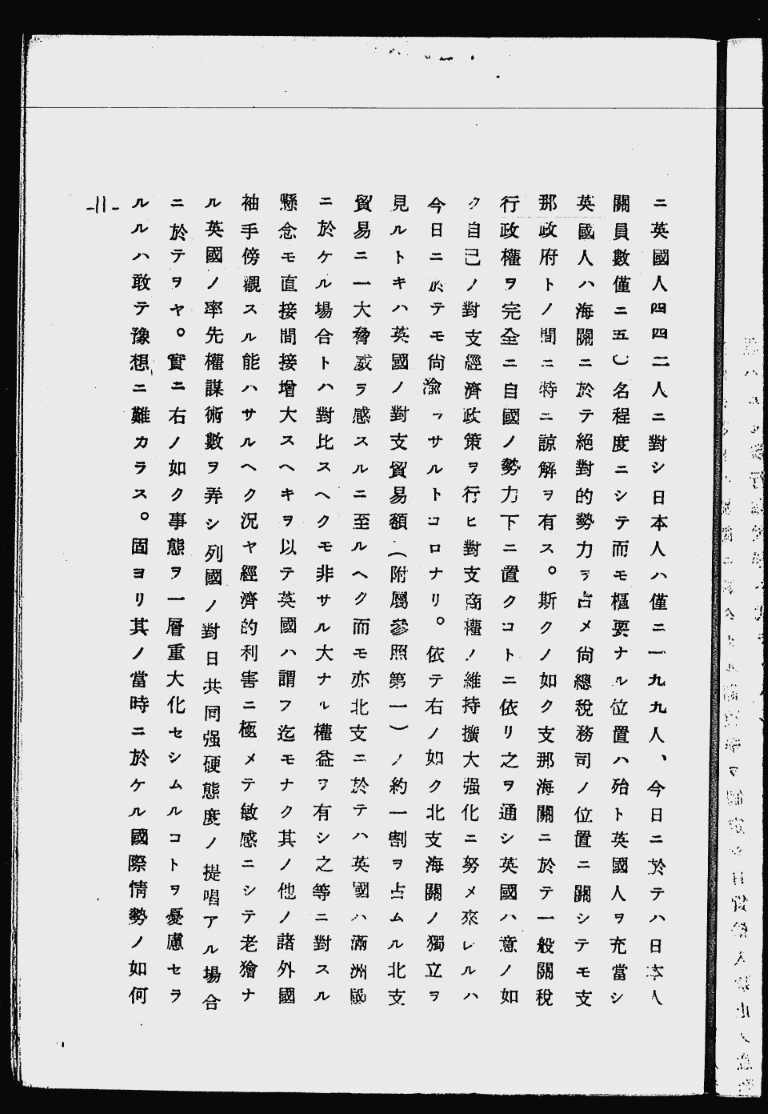 ニ英國人四四二人ニ對シ日本人ハ僅ニ一九九人、今日ニ於テハ日本人
關員數僅ニ五〇名程度ニシテ而モ樞要ナル位置ハ殆ト英國人ヲ充當シ
英國人ハ海關ニ於テ絕對的勢力ヲ占メ尙總稅務司ノ位置ニ關シテモ支
那政府トノ間ニ特ニ諒解ヲ有ス。斯クノ如ク支那海關ニ於テ一般關稅
行政權ヲ完全ニ自國ノ勢力下ニ置クコトニ依リ之ヲ通シ英國ハ意ノ如
ク自己ノ對支經濟政策ヲ行ヒ對支商權ノ維持擴大强化ニ努メ來レルハ
今日ニ於テモ尙渝ラサルトコロナリ。依テ右ノ如ク北支海關ノ獨立ヲ
見ルトキハ英國ノ對支貿易額(附屬參照第一)ノ約一割ヲ占ムル北支
貿易ニ一大脅威ヲ感スルニ至ルヘク而モ亦北支ニ於テハ英國ハ滿洲國
ニ於ケル場合トハ對比スヘクモ非サル大ナル權益ヲ有シ之等ニ對スル
懸念モ直接間接增大スヘキヲ以テ英國ハ謂フ迄モナク其ノ他ノ諸外國
袖手傍觀スル能ハサルヘク況ヤ經濟的利害ニ極メテ敏感ニシテ老獪ナ
ル英國ノ率先權謀術數ヲ弄シ列國ノ對日共同强硬態度ノ提唱アル場合
ニ於テヲヤ。實ニ右ノ如ク事態ヲ一層重大化セシムルコトヲ憂慮セラ
ルルハ敢テ豫想ニ難カラス。固ヨリ其ノ當時ニ於ケル國際情勢ノ如何
-11-